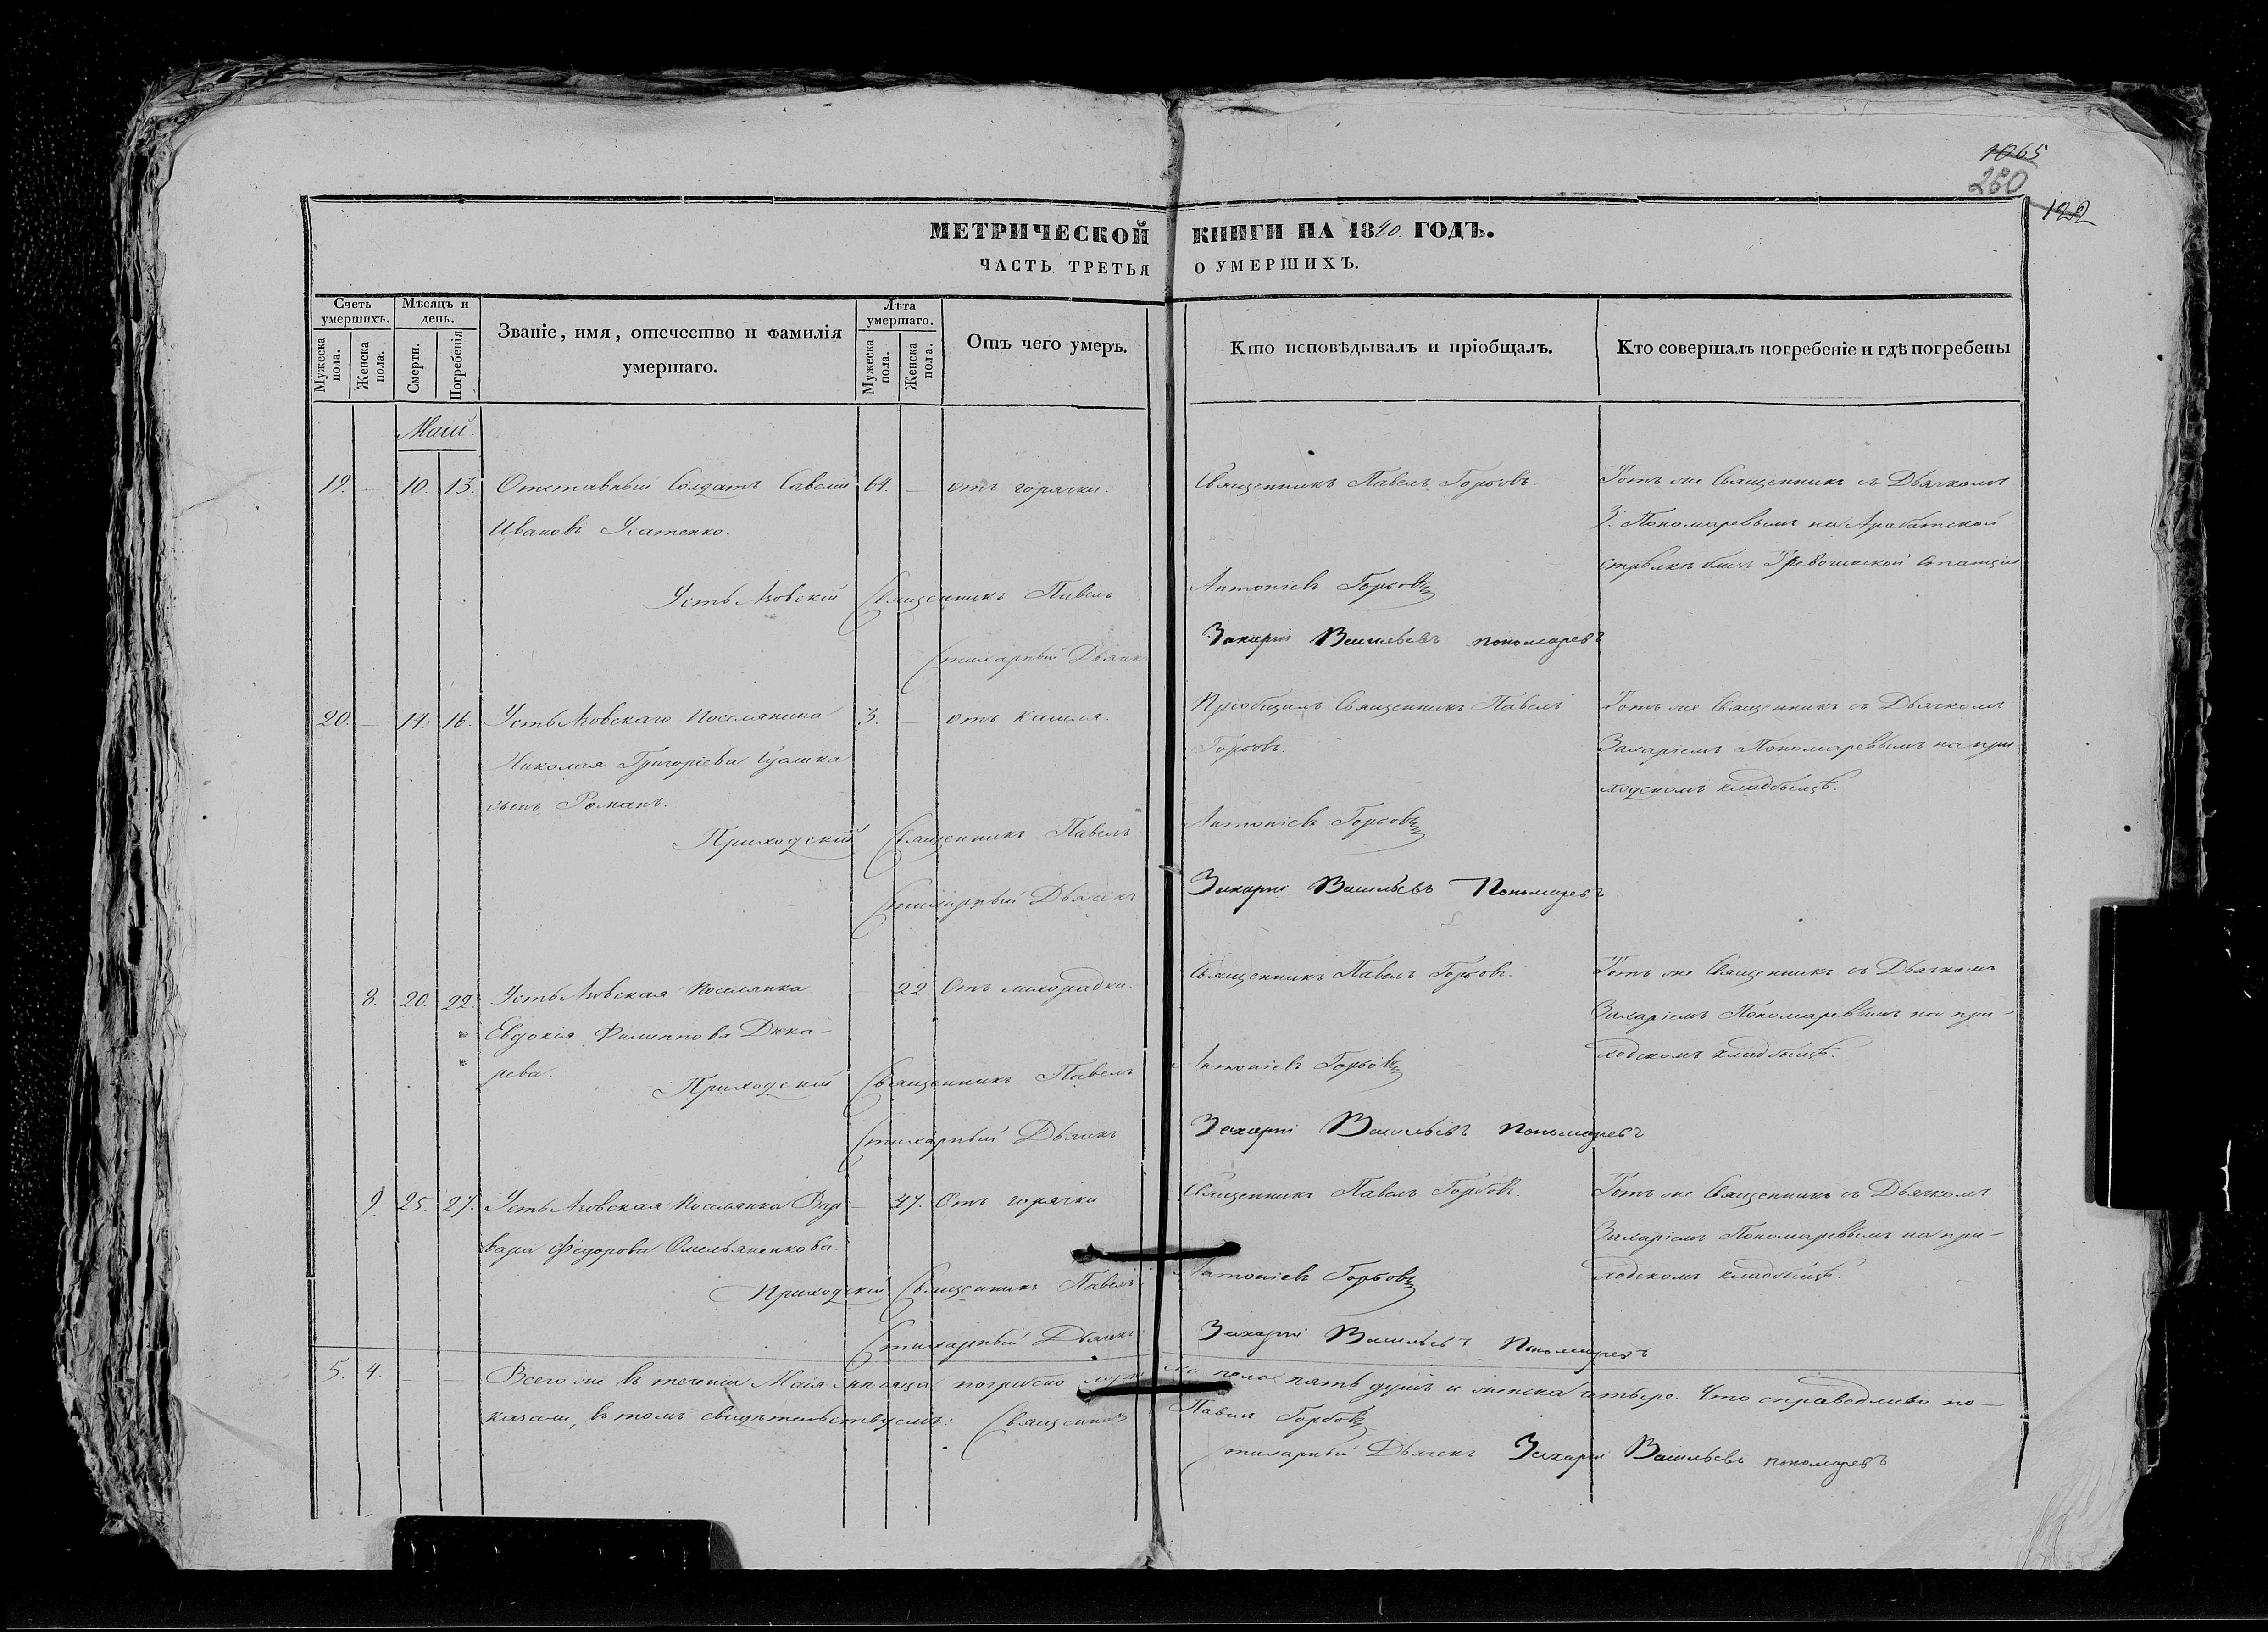 1065
260
122
МЕТРИЧЕСКОЙ КНИГИ НА 1840. ГОДЪ.
ЧАСТЬ ТРЕТЬЯ О УМЕРШИХЪ.
Счетъ умершихъ.
Мужеска пола.
Женска пола.
Мѣсяцъ и день.
Смерти.
Погребенія
Званіе, имя, отечество и фамилія
умершаго.
Лѣта умершаго.
Мужеска пола.
Женска пола.
Отъ чего умеръ.
Кто исповѣдывалъ и пріобщалъ.
Кто совершалъ погребеніе и гдѣ погребены
Маій.
19. — 10. 13. Отставный Солдатъ Савелій 64. — отъ горячки. Священникъ Павелъ Горбовъ. Тотъ же Священникъ съ Дьячкомъ
Ивановъ Усатенко. З. Пономаревымъ на Арабатской
стрѣлкѣ близъ станціи
Усть Азовскій Священникъ Павелъ Антоніевъ Горбовъ
Стихарный Дьячекъ Захарій Васильевъ пономаревъ
20. — 14. 16. Усть Азовскаго Поселянина 3. — отъ кашля. Пріобщалъ Священникъ Павелъ Тотъ же Священникъ съ Дьячкомъ
Николая Григоріева Горбовъ. Захаріемъ Пономаревымъ на при
сынъ Романъ. ходскомъ кладбищѣ.
Приходскій Священникъ Павелъ Антоніевъ Горбовъ
Стихарный Дьячекъ Захарій Васильевъ Пономаревъ
8. 20. 22. Усть Азовская Поселянка — 22. Отъ лихорадки. Священникъ Павелъ Горбовъ. Тотъ же Священникъ съ Дьячкомъ
Евдокія Филиппова Дика- Захаріемъ Пономаревымъ на при-
рева. ходскомъ кладбищѣ.
Приходскій Священникъ Павелъ Антоніевъ Горбовъ
Стихарный Дьячекъ Захарій Васильевъ пономаревъ
9. 25. 27. Усть Азовская Поселянка Вар — 47. Отъ горячки Священникъ Павелъ Горбовъ. Тотъ же Священникъ съ Дьячкомъ
вара Федорова Омельяненкова. Захаріемъ Пономаревымъ на при-
ходскомъ кладбищѣ.
Приходскій Священникъ Павелъ Антоніевъ Горбовъ
Стихарный Дьячекъ Захарій Васильевъ Пономаревъ
5. 4. — — Всего же въ теченіи Маія мѣсяца погребено мужеска пола пять душъ и женска четыре. Что справедливо по-
казали, въ томъ свидѣтельствуемъ: Священникъ Павелъ Горбовъ
Стихарный Дьячекъ Захарій Васильевъ пономаревъ